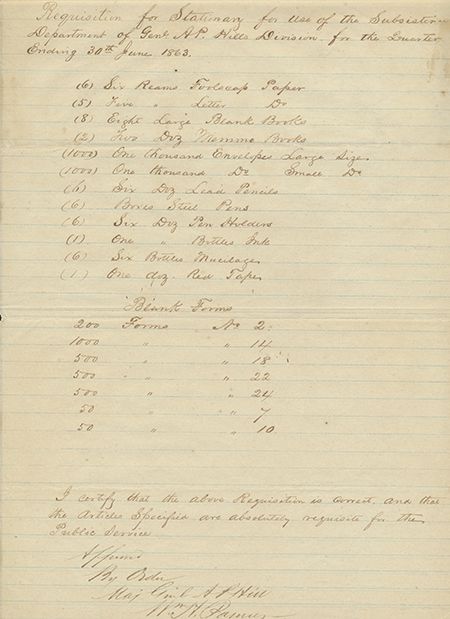 Requisition for Stationary for Use of the Subsistence
Department of Genl A.P. Hills Division. for the Quarter
Ending 30th June 1863.
(6) Six Reams Foolscap Paper
(5) Five " Letter Do
(8) Eight Large Blank Books
(2) Two Doz Memmo Books
(1000) One thousand Envelopes Large Size
(1000) One thousand Do Small Do
(6) Six Doz Lead Pencils
(6) Boxes Steel Pens
(6) Six Doz Pen Holders
(1) One " Bottles Ink
(6) Six Bottles Mucilage
(1) One doz. Red Tape
Blank Forms
200 Forms No 2
1000 " " 14
500 " " 18
500 " " 22
500 " " 24
50 " " 7
50 " " 10
I certify that the above Requisition is correct. and that
the Articles Specified are absolutely requisite for the
Public Service
By Order
Maj Genl A P Hill
Wm H. Palmer